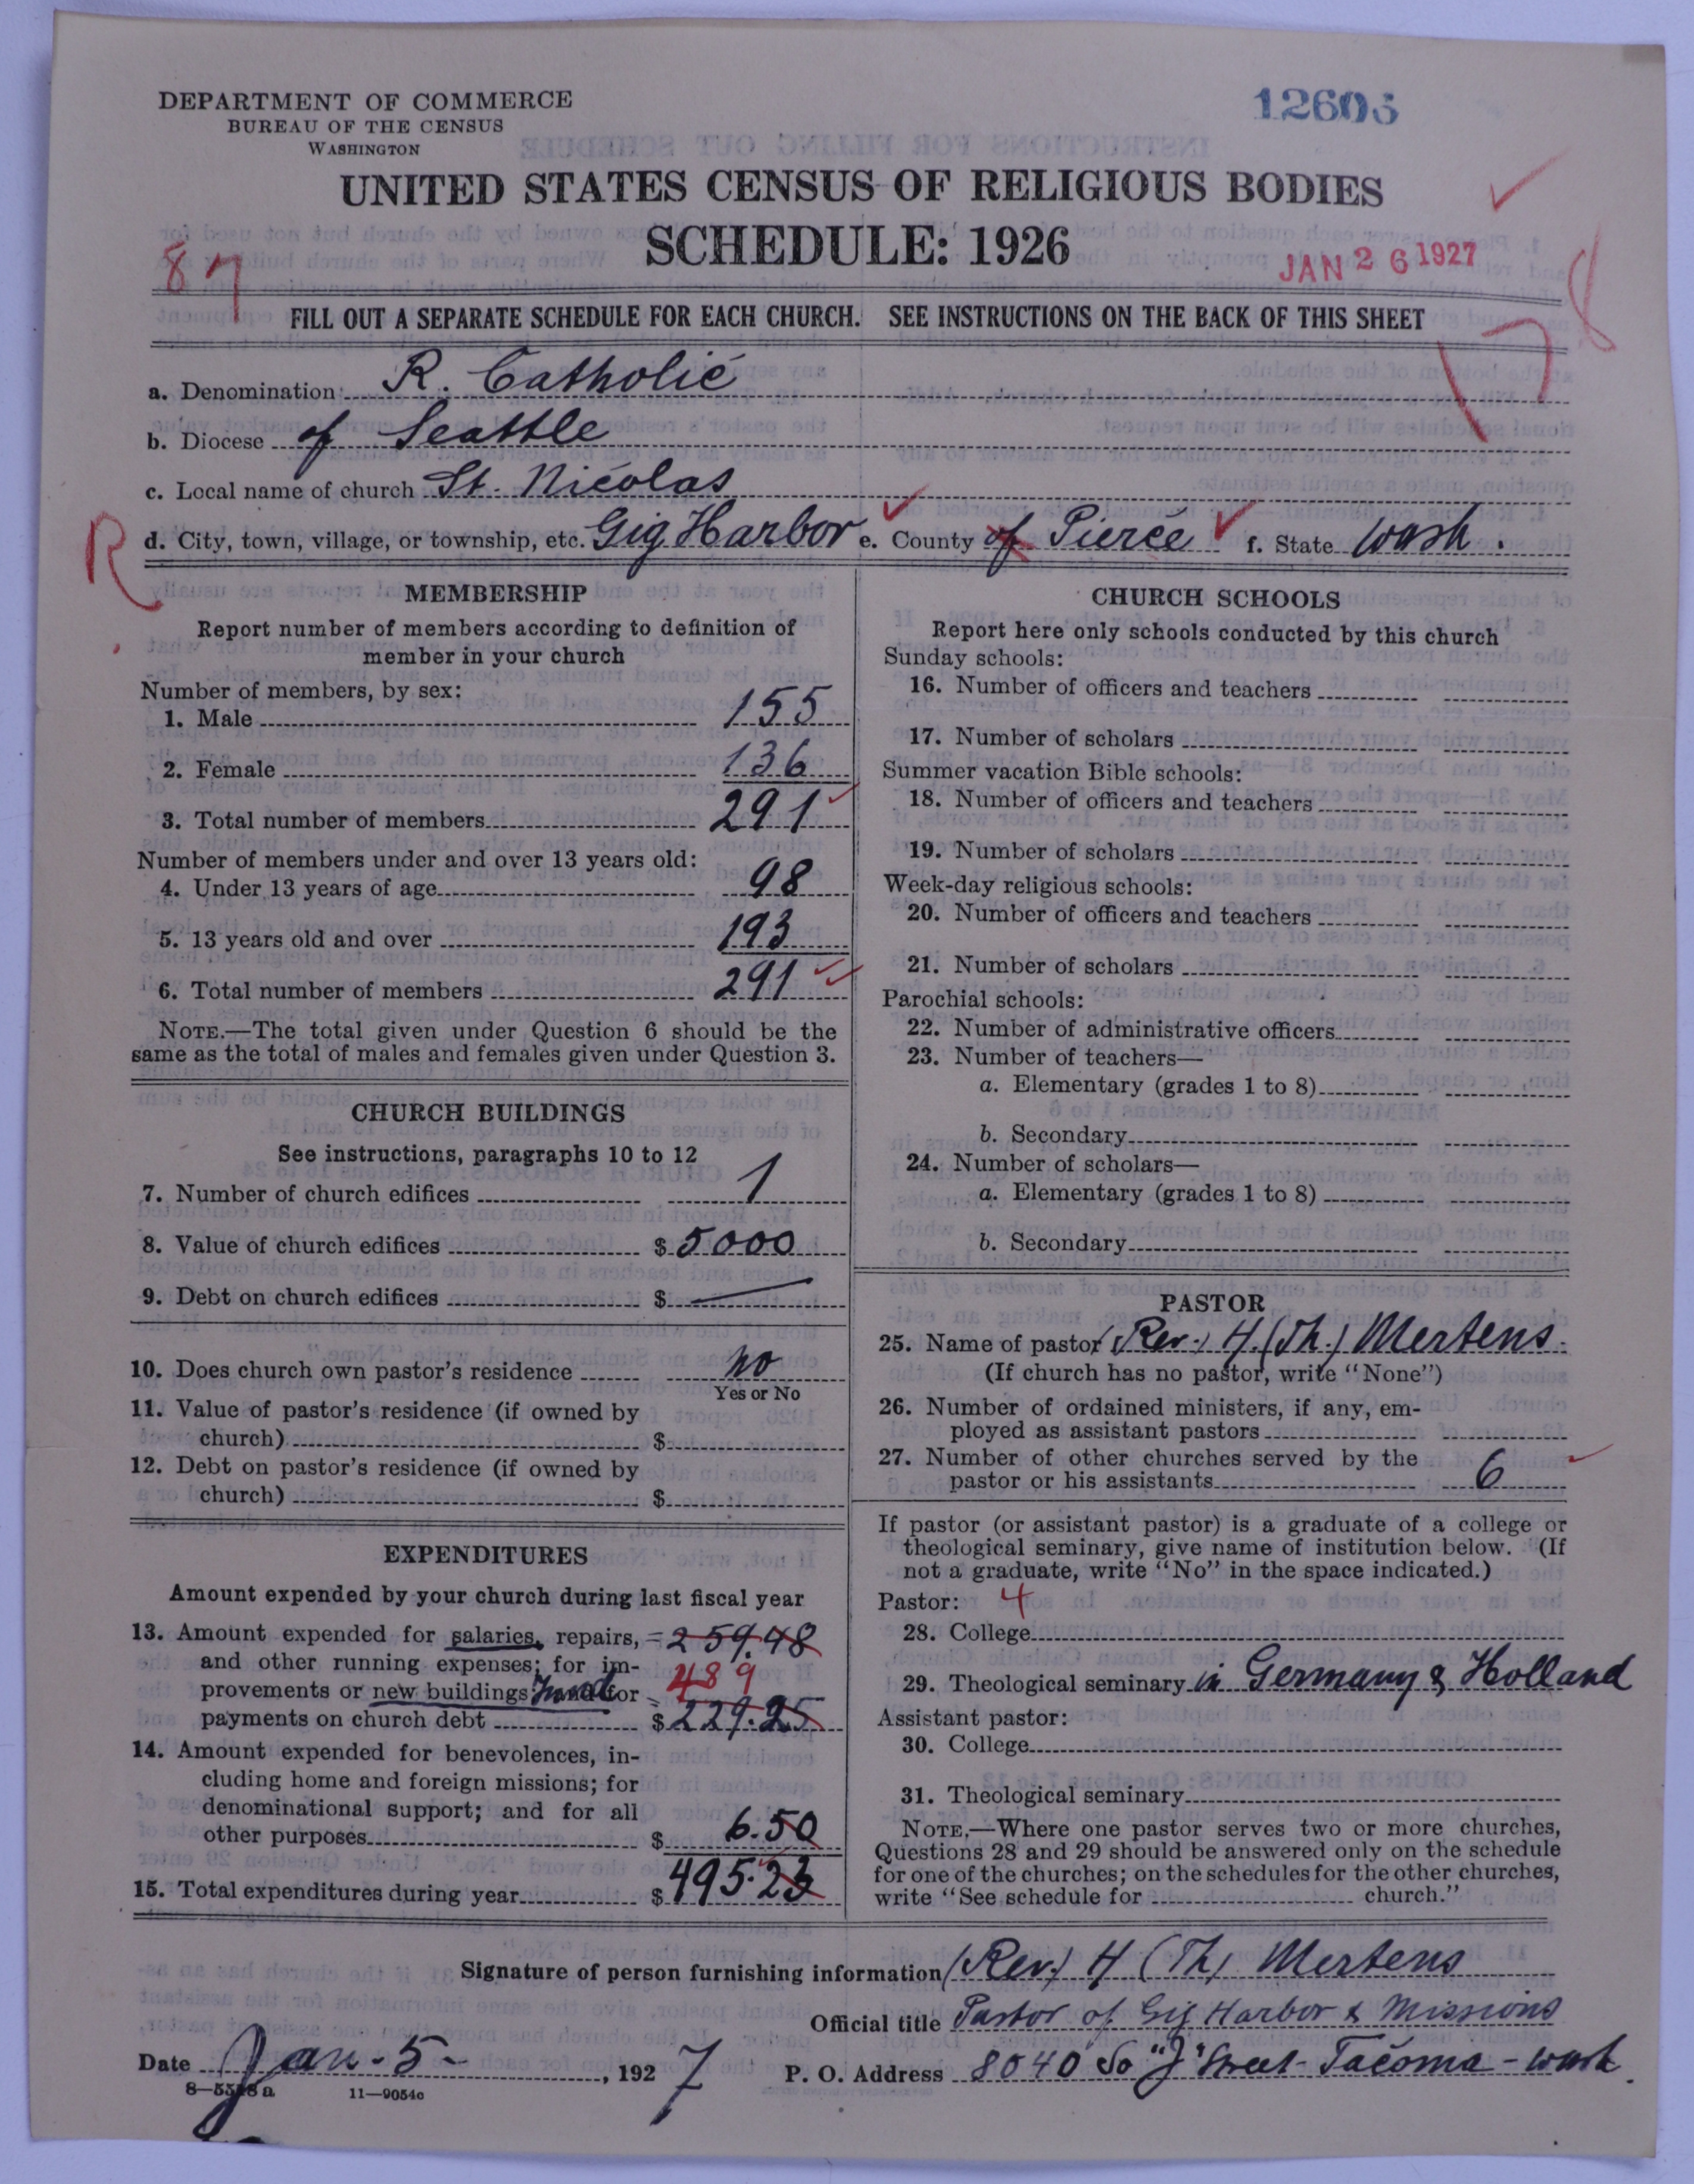 DEPARTMENT OF COMMERCE
BUREAU OF THE CENSUS
WASHINGTON
12605
UNITED STATES CENSUS OF RELIGIOUS BODIES
SCHEDULE: 1926
JAN 26 1927
87
178
FILL OUT A SEPARATE SCHEDULE FOR EACH CHURCH. SEE INSTRUCTIONS ON THE BACK OF THIS SHEET
a. Denomination R. Catholic
b. Diocese of Seattle
c. Local name of church St. Nicolas
R
d. City, town, village, or township, etc. Gig Harbor e. County of Pierce f. State Wash.
MEMBERSHIP
Report number of members according to definition of
member in your church
Number of members, by sex:
1. Male 155
2. Female 136
3. Total number of members 291
Number of members under and over 13 years old:
4. Under 13 years of age 98
5. 13 years old and over 193
6. Total number of members 291
NOTE.—The total given under Question 6 should be the
same as the total of males and females given under Question 3.
CHURCH BUILDINGS
See instructions, paragraphs 10 to 12
7. Number of church edifices 1
8. Value of church edifices $ 5000
9. Debt on church edifices $ —
10. Does church own pastor's residence no
Yes or No
11. Value of pastor's residence (if owned by
church) $
12. Debt on pastor's residence (if owned by
church) $
EXPENDITURES
Amount expended by your church during last fiscal year
13. Amount expended for salaries, repairs, = 259.48
and other running expenses; for im-
489
provements or new buildings; and for =
payments on church debt $ 229.25
14. Amount expended for benevolences, in-
cluding home and foreign missions; for
denominational support; and for all
other purposes $ 6.50
15. Total expenditures during year $ 495.23
CHURCH SCHOOLS
Report here only schools conducted by this church
Sunday schools:
16. Number of officers and teachers
17. Number of scholars
Summer vacation Bible schools:
18. Number of officers and teachers
19. Number of scholars
Week-day religious schools:
20. Number of officers and teachers
21. Number of scholars
Parochial schools:
22. Number of administrative officers
23. Number of teachers—
a. Elementary (grades 1 to 8)
b. Secondary
24. Number of scholars—
a. Elementary (grades 1 to 8)
b. Secondary
PASTOR
25. Name of pastor (Rev.) H. (Th.) Mertens.
(If church has no pastor, write "None")
26. Number of ordained ministers, if any, em-
ployed as assistant pastors
27. Number of other churches served by the
pastor or his assistants 6
If pastor (or assistant pastor) is a graduate of a college or
theological seminary, give name of institution below. (If
not a graduate, write "No" in the space indicated.)
Pastor: 4
28. College
29. Theological seminary in Germany & Holland
Assistant pastor:
30. College
31. Theological seminary
NOTE.—Where one pastor serves two or more churches,
Questions 28 and 29 should be answered only on the schedule
for one of the churches; on the schedules for the other churches,
write "See schedule for church."
Signature of person furnishing information (Rev.) H (Th) Mertens
Official title Pastor of Gig Harbor & Missions
Date Jan. 5 - , 1927 P. O. Address 8040 So "J" Street - Tacoma - Wash.
8—5518a 11—9054c